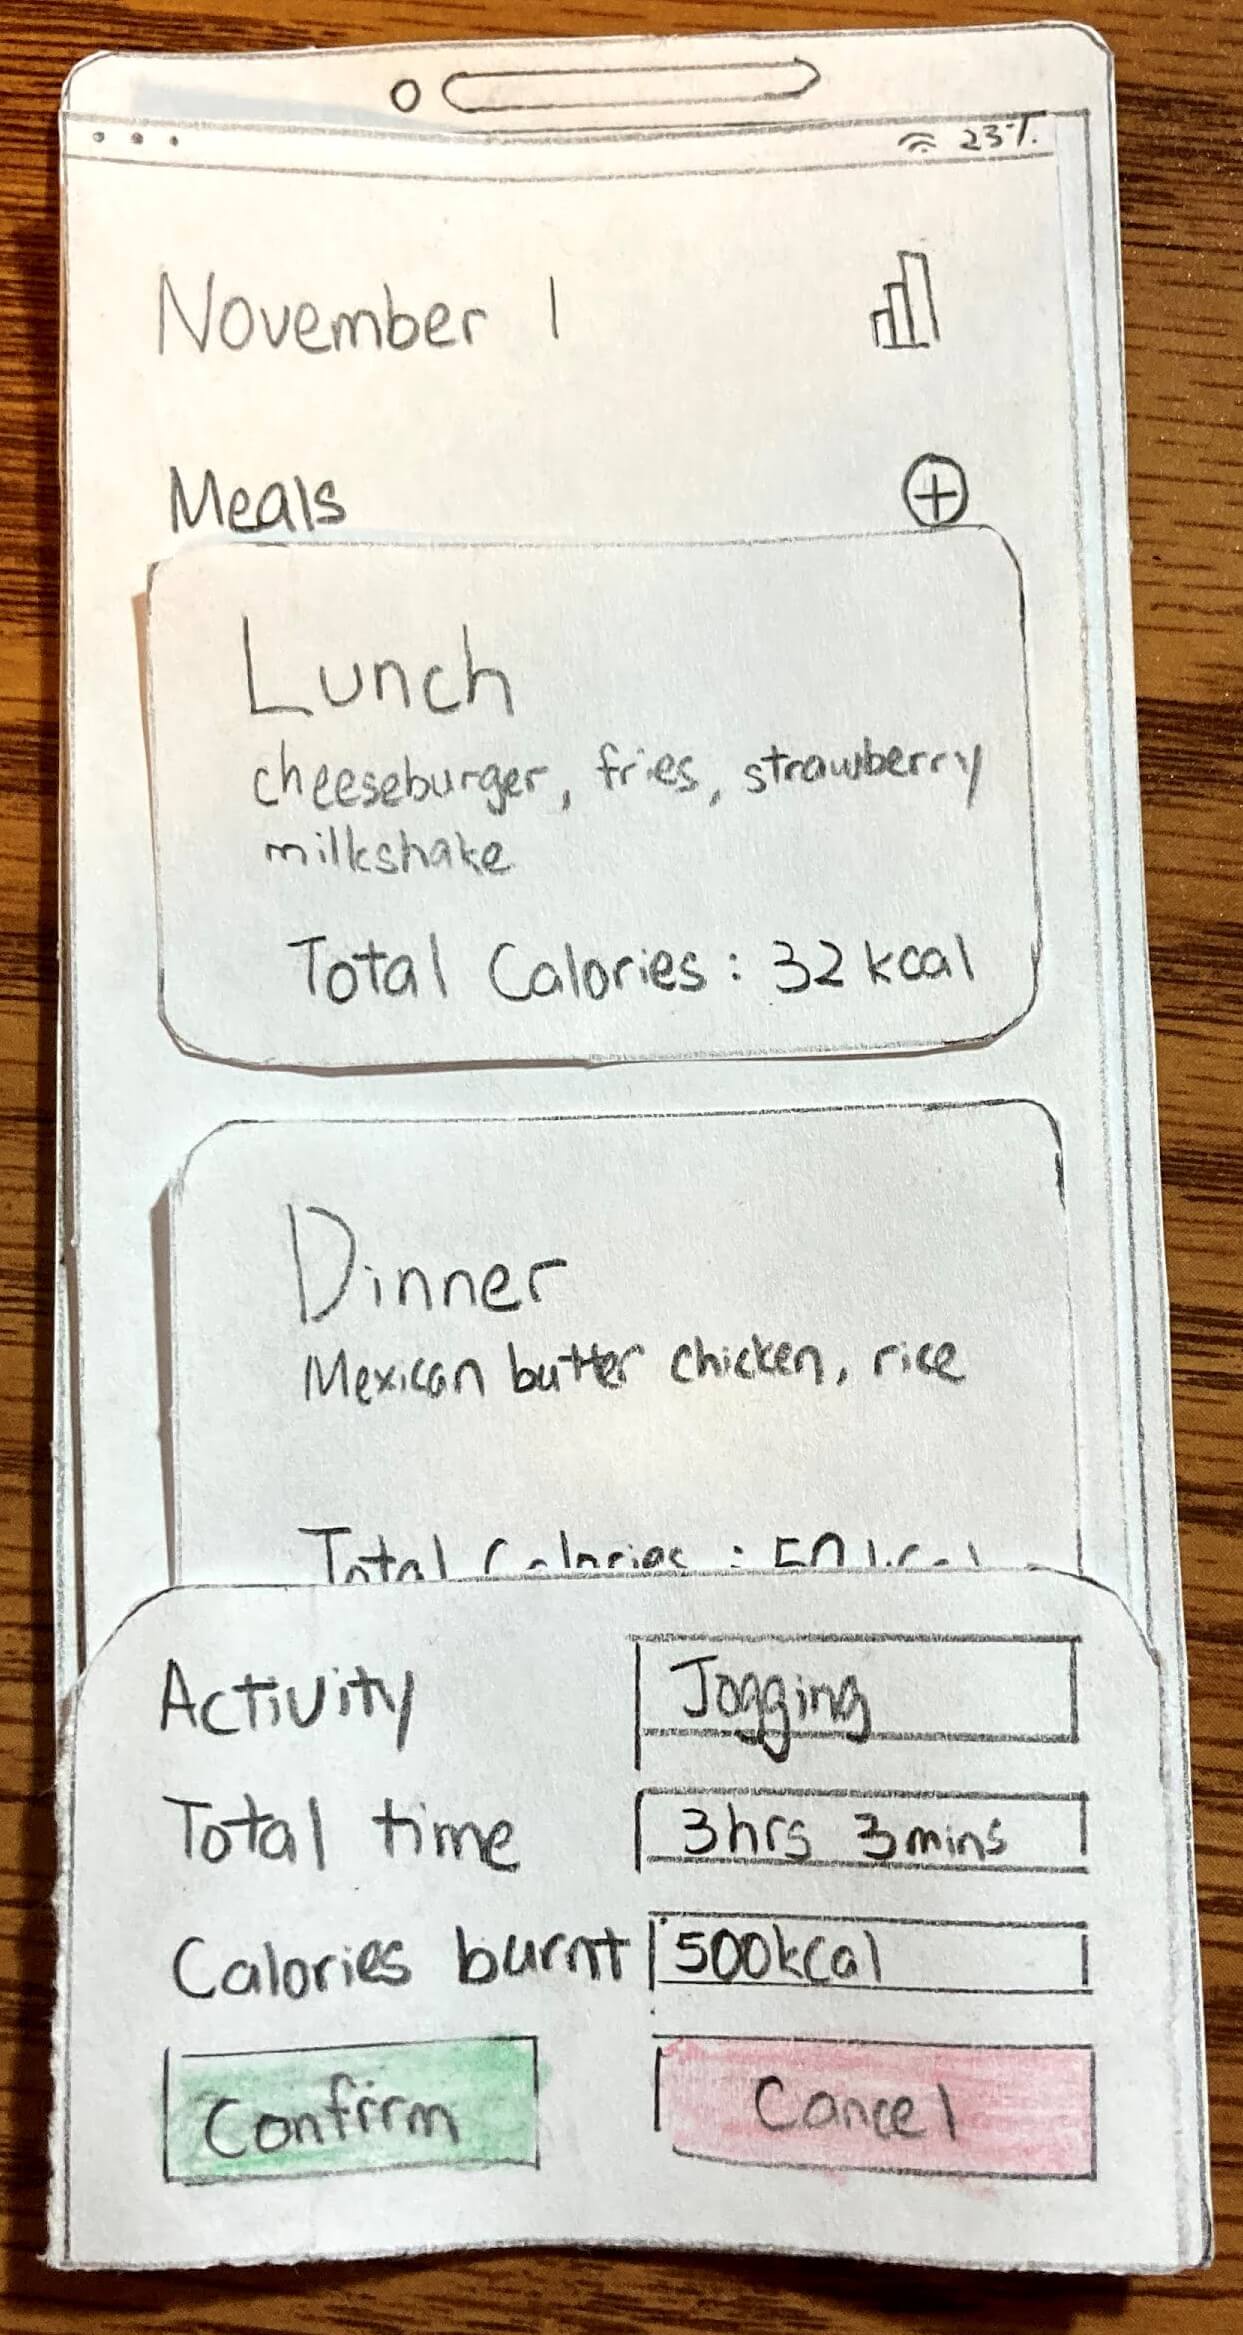 23%
November 1
Meals
Lunch
cheeseburger, fries, strawberry
milkshake
Total Calories: 32 kcal
Dinner
Mexican butter chicken, rice
Total Calories: 50 kcal
Activity Jogging
Total time 3hrs 3mins
Calories burnt 500kcal
Confirm Cancel